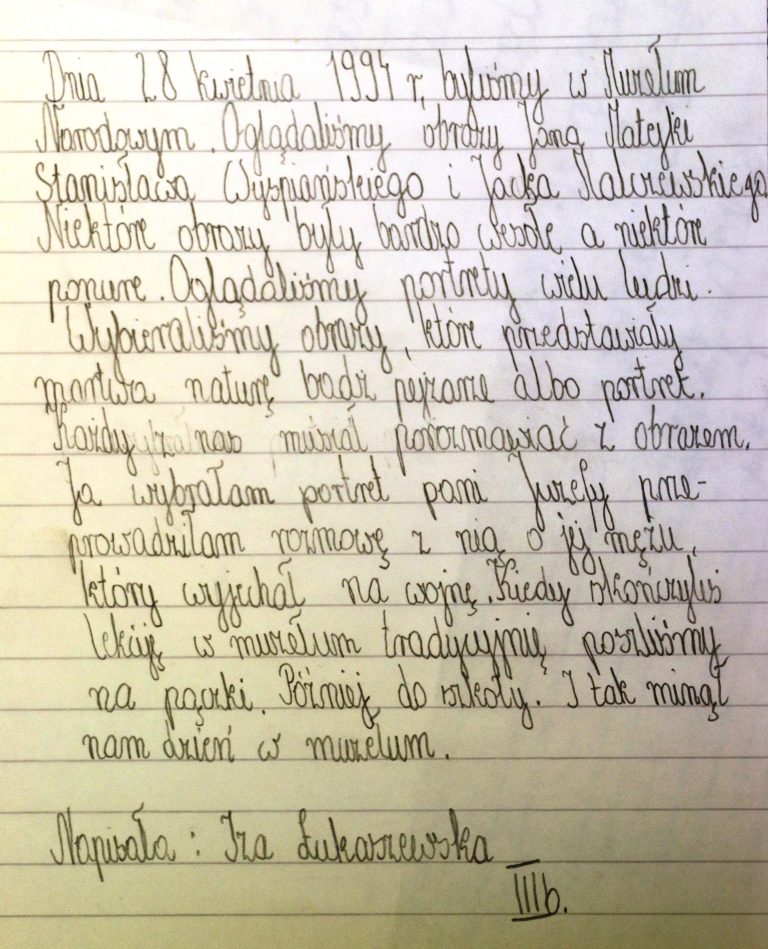 Dnia 28 kwietnia 1994 r, byliśmy w Muzełum
Narodowym. Oglądaliśmy obrazy Jana Matejki
Stanisława Wyspiańskiego i Jacka Malczewskiego
Niektóre obrazy były bardzo wesołe a niektóre
ponure. Oglądaliśmy portrety wielu ludzi.
Wybieraliśmy obrazy, które przedstawiały
martwą naturę bądź pejzarze albo portret.
Każdy z nas musiał porozmawiać z obrazem.
Ja wybrałam portret pani Juzefy prze-
prowadziłam rozmowę z nią o jej mężu,
który wyjechał na wojnę. Kiedy skończyliś
lekcję w muzełum tradycyjnię poszliśmy
na pączki. Później do szkoły. I tak minął
nam dzień w muzełum.
Napisała : Iza Łukaszewska
IIIb.